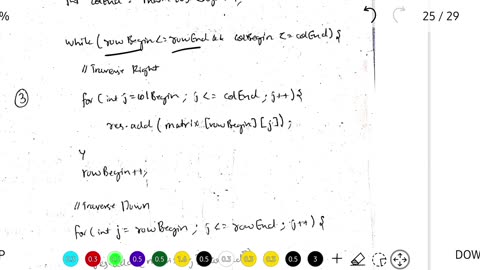 %
25 / 29
while (rowBegin <= rowEnd && colBegin <= colEnd) {
// Traverse Right
③
for (int j = colBegin ; j <= colEnd ; j++) {
res.add (matrix [rowBegin] [j]);
}
rowBegin++;
// Traverse Down
for (int j = rowBegin ; j <= rowEnd ; j++) {
P
0.3 0.5 0.5 1.6 0.5 0.3 0.3 0.5 3
DOW